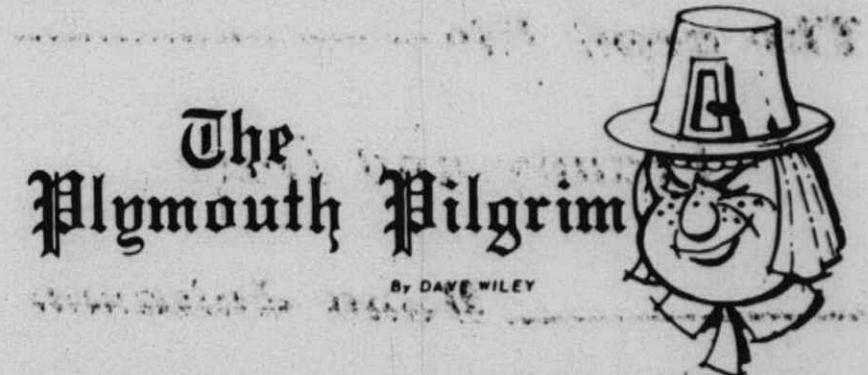 The
Plymouth Pilgrim
By DAVE WILEY